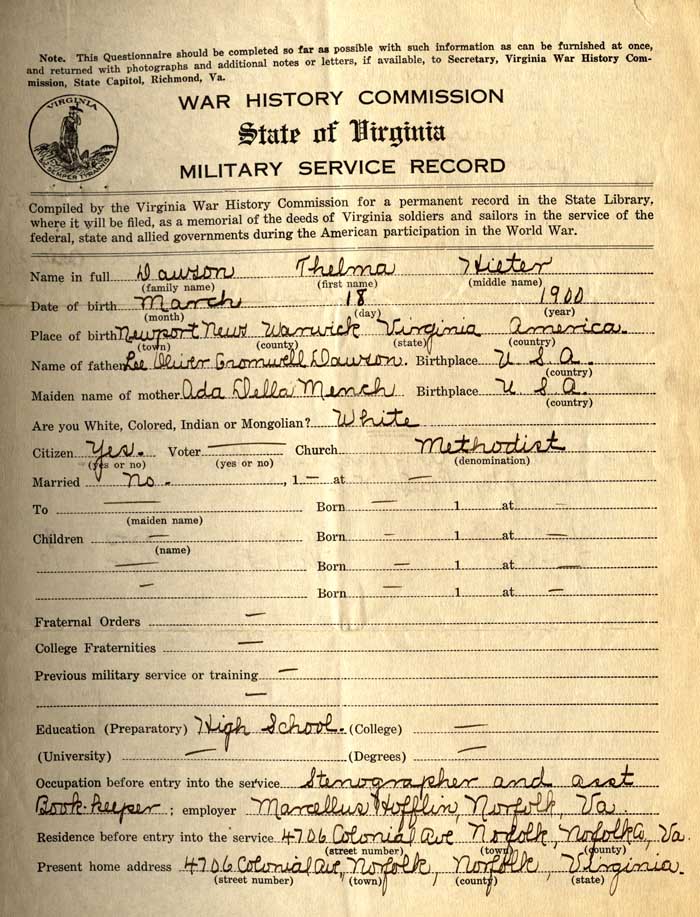 Note. This Questionnaire should be completed so far as possible with such information as can be furnished at once,
and returned with photographs and additional notes or letters, if available, to Secretary, Virginia War History Com-
mission, State Capitol, Richmond, Va.
VIRGINIA
SIC SEMPER TYRANNIS
WAR HISTORY COMMISSION
State of Virginia
MILITARY SERVICE RECORD
Compiled by the Virginia War History Commission for a permanent record in the State Library,
where it will be filed, as a memorial of the deeds of Virginia soldiers and sailors in the service of the
federal, state and allied governments during the American participation in the World War.
Name in full Dawson Thelma Hieter
(family name) (first name) (middle name)
Date of birth March 18 1900
(month) (day) (year)
Place of birth Newport News Warwick Virginia America.
(town) (county) (state) (country)
Name of father Lee Oliver Cromwell Dawson. Birthplace U S A.
(country)
Maiden name of mother Ada Della Mench Birthplace U S A.
(country)
Are you White, Colored, Indian or Mongolian? White
Citizen Yes. Voter — Church Methodist
(yes or no) (yes or no) (denomination)
Married No. , 1 — at —
To — Born — 1 at —
(maiden name)
Children — Born — 1 at —
(name)
— Born — 1 at —
— Born — 1 at —
Fraternal Orders —
College Fraternities —
Previous military service or training —
—
Education (Preparatory) High School. (College) —
(University) — (Degrees) —
Occupation before entry into the service Stenographer and asst
Book-keeper ; employer Marcellus Hofflin, Norfolk, Va.
Residence before entry into the service 4706 Colonial Ave Norfolk, Va.
(street number) (town) (county)
Present home address 4706 Colonial Ave, Norfolk, Norfolk, Virginia.
(street number) (town) (county) (state)